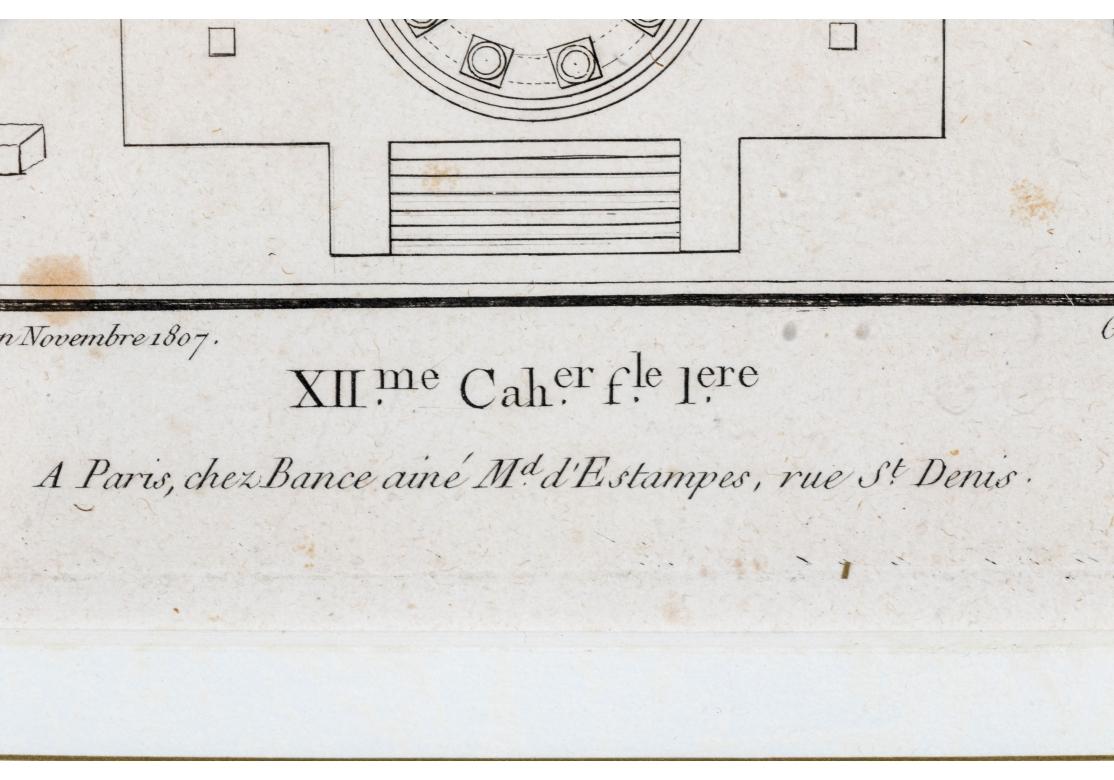 n Novembre 1807.
XII.me Cah.er f.le 1.ere
A Paris, chez Bance ainé M.d d'Estampes, rue S.t Denis.